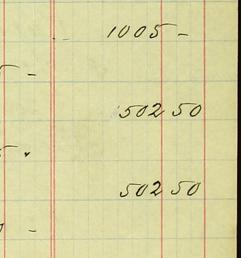 1005 –
5 –
502 50
5
502 50
–